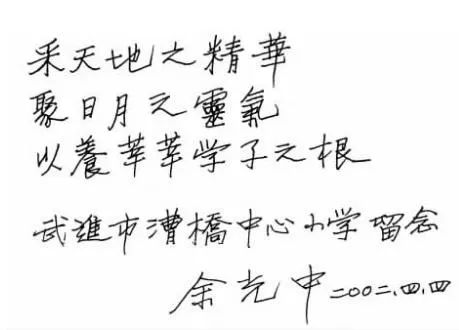 采天地之精華
聚日月之靈氣
以養莘莘学子之根
武進市漕橋中心小学留念
余光中 二〇〇二.四.四